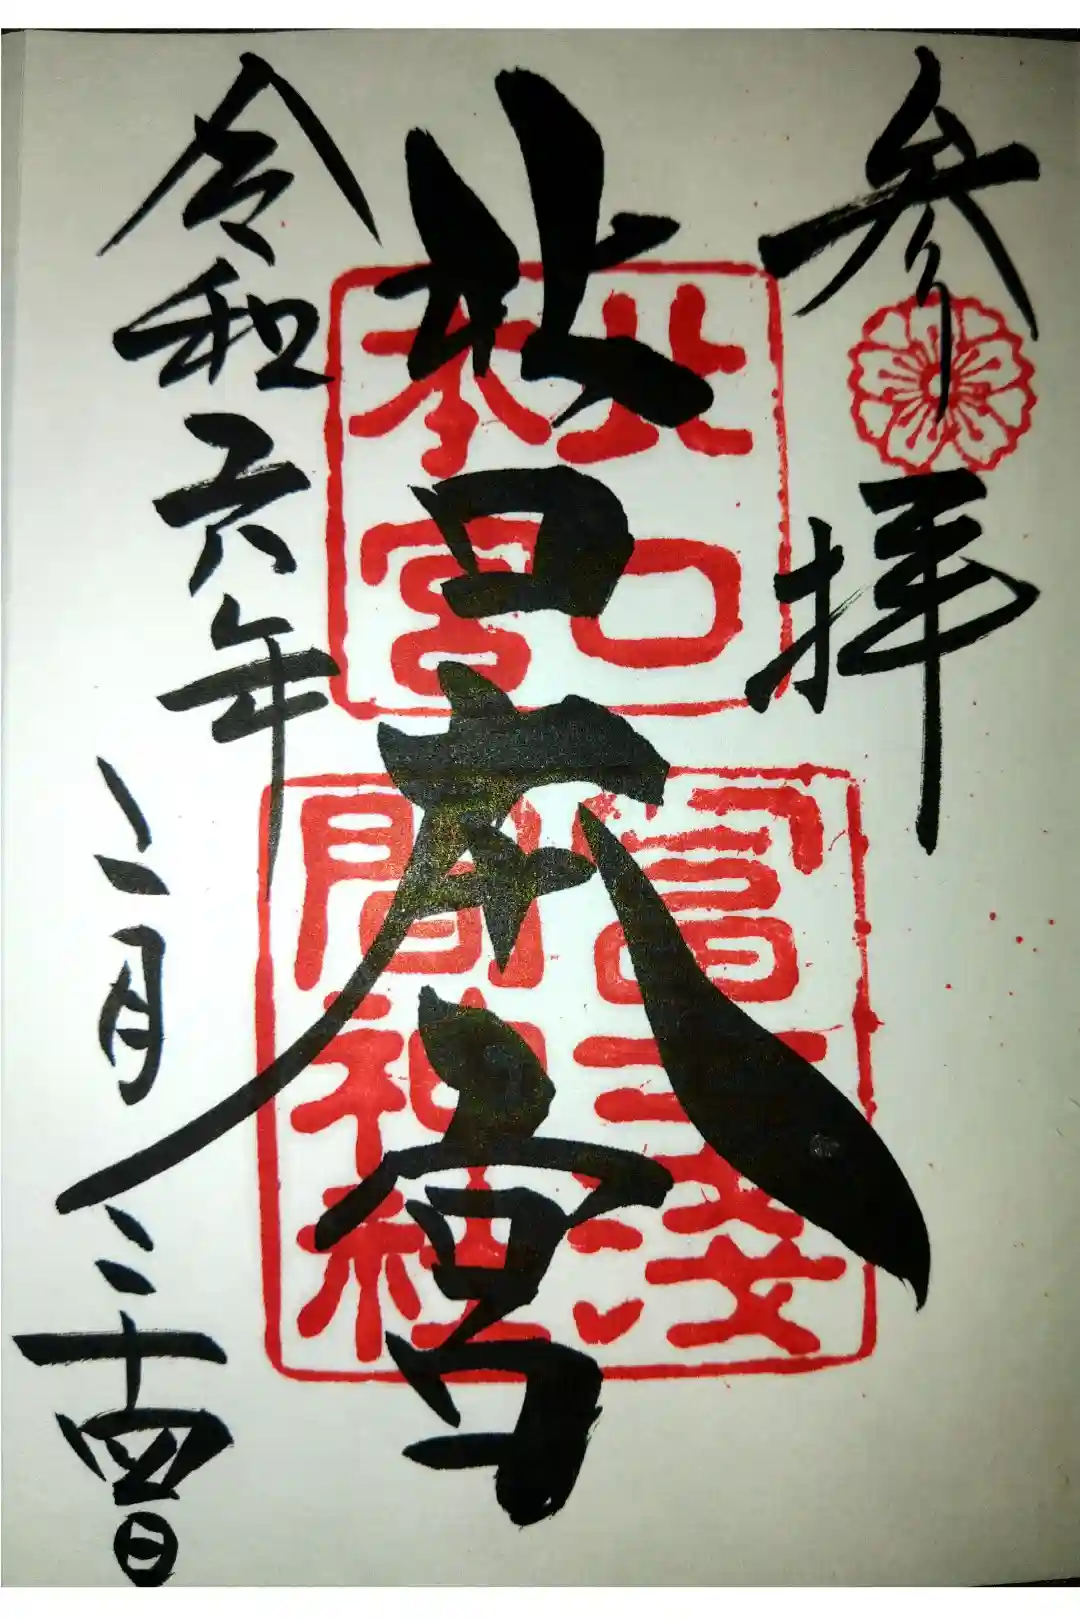 参拝
北口本宮
令和六年二月二十四日
北口
本宮
冨士淺
間神社